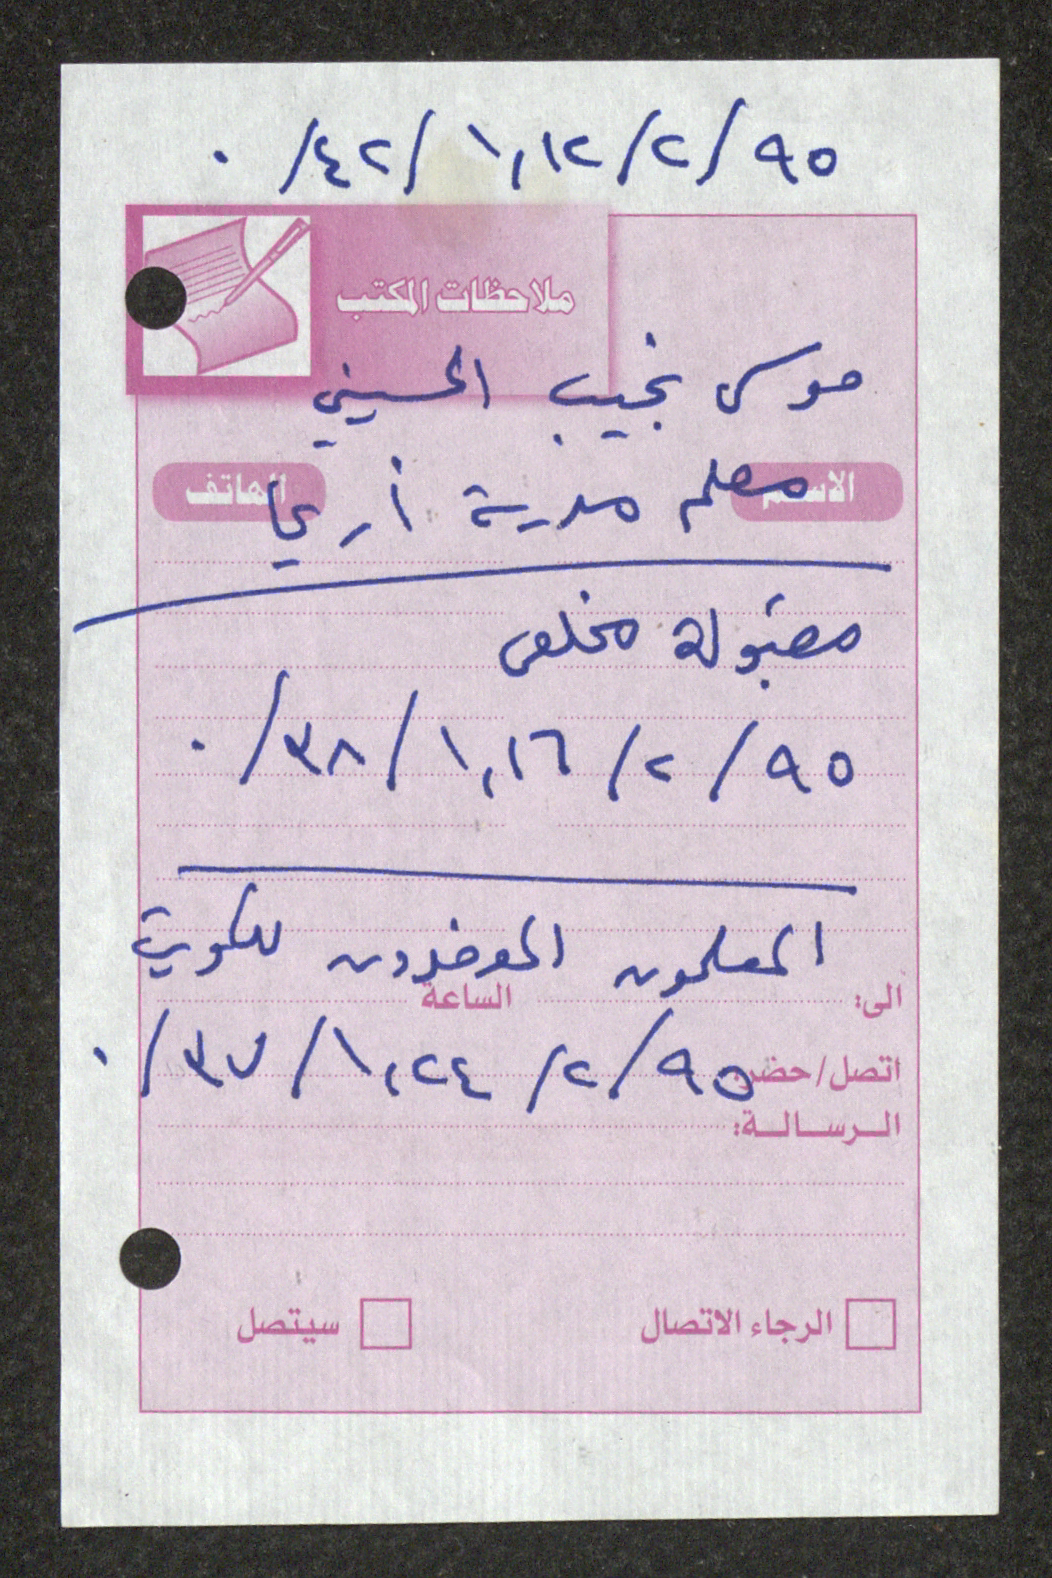 ٩٥/٢/١,١٢/٤٢/٠
ملاحظات المكتب
موسى نجيب الحسيني
الاسم
الهاتف
معلم مدرسة أريحا
مقبولة مخلص
٩٥/٢/١,١٦/٣٨/٠
المعلمون الموفدون للكويت
الى:
الساعة
٩٥/٢/١,٢٤/٣٧/٠
اتصل/حضر:
الرسالة:
الرجاء الاتصال
سيتصل